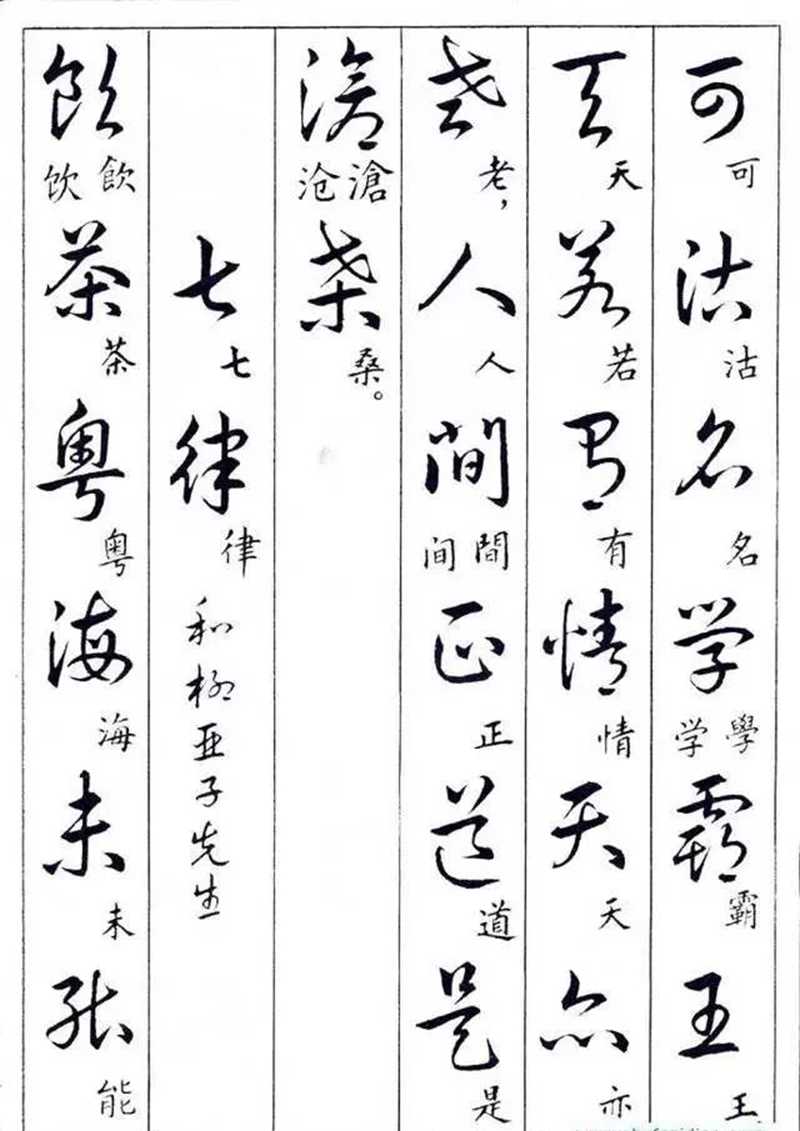 可可沽沽名名学學学霸霸王王
天天若若有有情情天天亦亦
老老，人人間間间正正道道是是
滄滄沧桑桑。
七七律律和柳亚子先生
飲飲饮茶茶粤粤海海未未能能